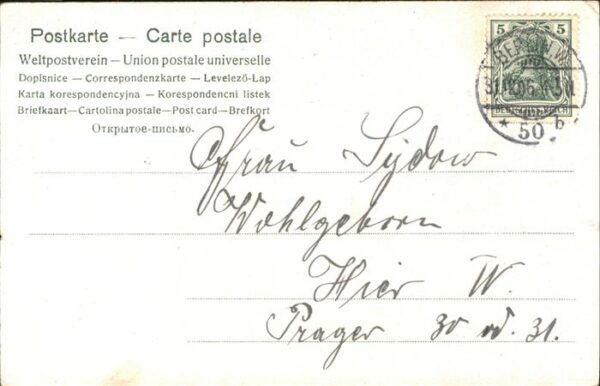 Postkarte — Carte postale
Weltpostverein — Union postale universelle
Dopisnice — Correspondenzkarte — Levelező-Lap
Karta korespondencyjna — Korespondencni listek
Briefkaart — Cartolina postale — Post card — Brefkort
Открытое письмо.
5 5
BERLIN W.
31.12.06
* 50 b
Frau Sydow
Wohlgeborn
Hier W.
Prager 30 od. 31.